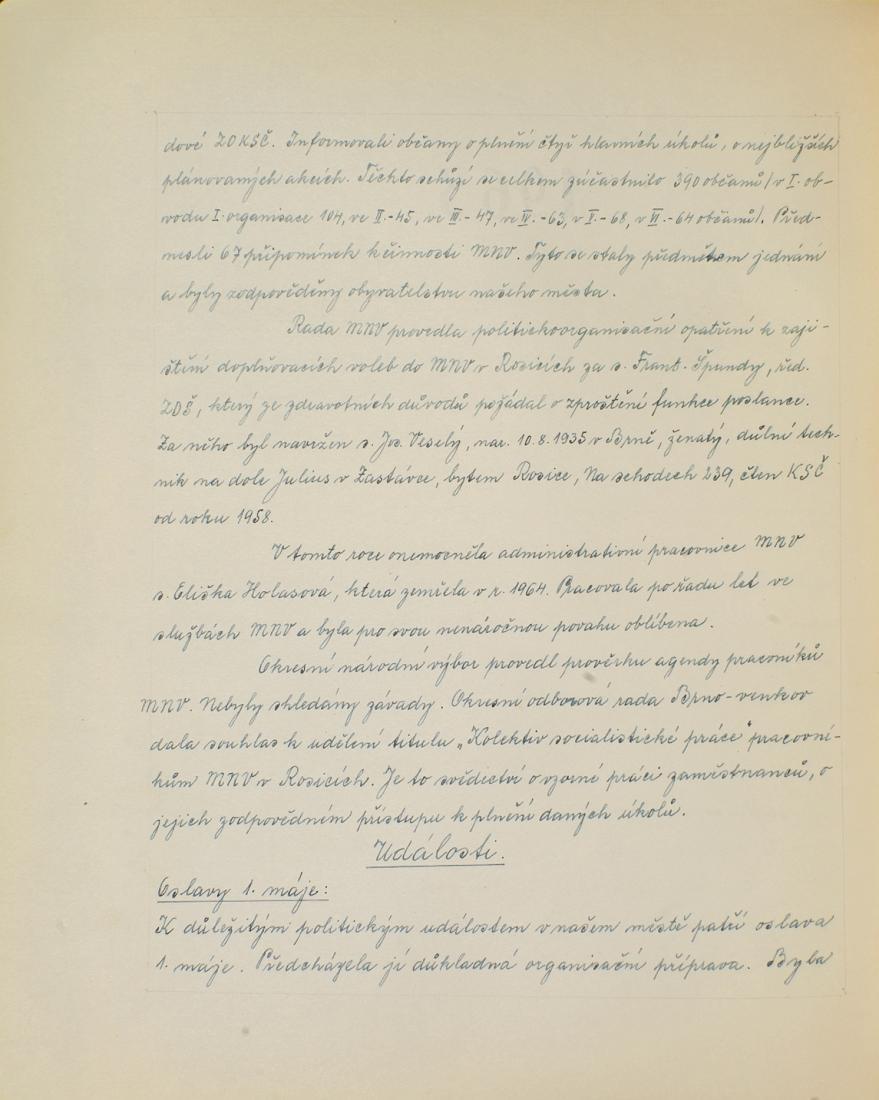 dové ZO KSČ. Informovali občany o plnění čtyř hlavních úkolů, o nejbližších
plánovaných akcích. Těchto schůzí se celkem zúčastnilo 390 občanů / v I. ob-
vodu I. organisace 104, ve II. - 45, ve III. - 47, ve IV. - 63, v V. - 68, v VI. - 64 občanů/. Před-
nesli 67 připomínek k činnosti MNV. Tyto se staly předmětem jednání
a byly zodpověděny obyvatelstvu našeho města.
Rada MNV provedla politickoorganisační opatření k zaji-
štění doplňovacích voleb do MNV v Rosicích za s. Frant. Špundy, řed.
ZDŠ, který ze zdravotních důvodů požádal o zproštění funkce poslance.
Za něho byl navržen s. Jos. Veselý, nar. 10. 8. 1935 v Brně, ženatý, důlní tech-
nik na dole Julius v Zastávce, bytem Rosice, Na schodech 239, člen KSČ
od roku 1958.
V tomto roce onemocněla administrativní pracovnice MNV
s. Eliška Holasová, která zemřela v r. 1964. Pracovala po řadu let ve
službách MNV a byla pro svou nenáročnou povahu oblíbena.
Okresní národní výbor provedl prověrku agendy pracovníků
MNV. Nebyly shledány závady. Okresní odborová rada Brno-venkov
dala souhlas k udělení titulu „Kolektiv socialistické práce" pracovní-
kům MNV v Rosicích. Je to svědectví o vzorné práci zaměstnanců, o
jejich zodpovědném přístupu k plnění daných úkolů.
Události.
Oslavy 1. máje:
K důležitým politickým událostem v našem městě patří oslava
1. máje. Předcházela jí důkladná organisační příprava. Byla